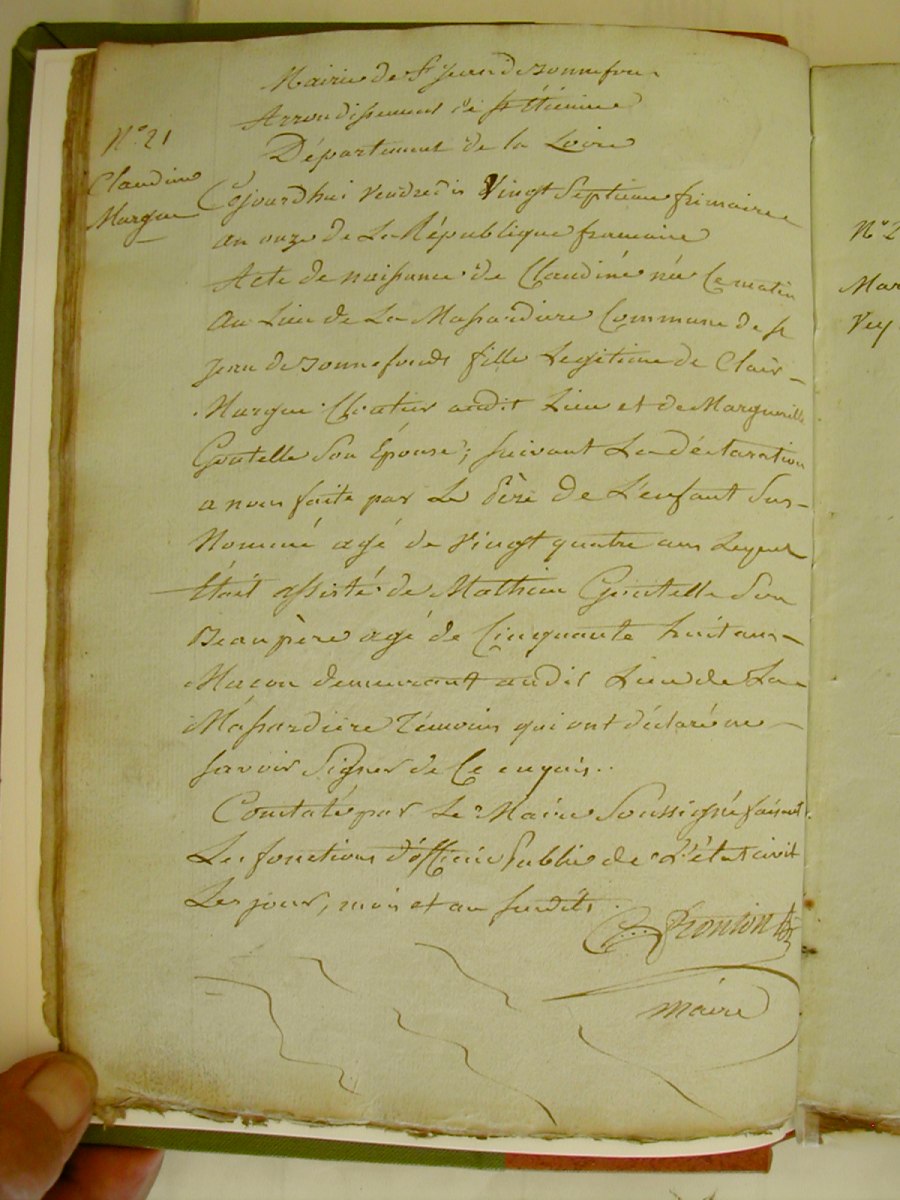 Mairie de St Jean de Bonnefon
Arrondissement de St étienne
Département de la Loire
N° 21
Claudine
Margue
Cejourdhui vendredis vingt Septieme frimaire
an onze de La République francaise
Acte de naissance de Claudine née Ce matin
au Lieu de La Massardiere Commune de st
jean de Bonnefonds fille Legitime de Clair
Margue Cloutier audit Lieu et de Marguerille
Goutelle Son Épouse; suivant La déclaration
a nous faite par Le Père de L'enfant Sus-
Nommé agé de vingt quatre ans Lequel
Était assisté de Mathieu Goutelle Son
Beaupère agé de Cinquante huit ans
Macon demeurant audit Lieu de La
Massardiere Témoins qui ont déclaré ne
savoir Signer de Ce enquis..
Constaté par Le Maire Soussigné faisant
Les fonctions d'officier Public de L'état civil
Les jour, mois et an susdits.
maire
N° 2
Mar
Vey